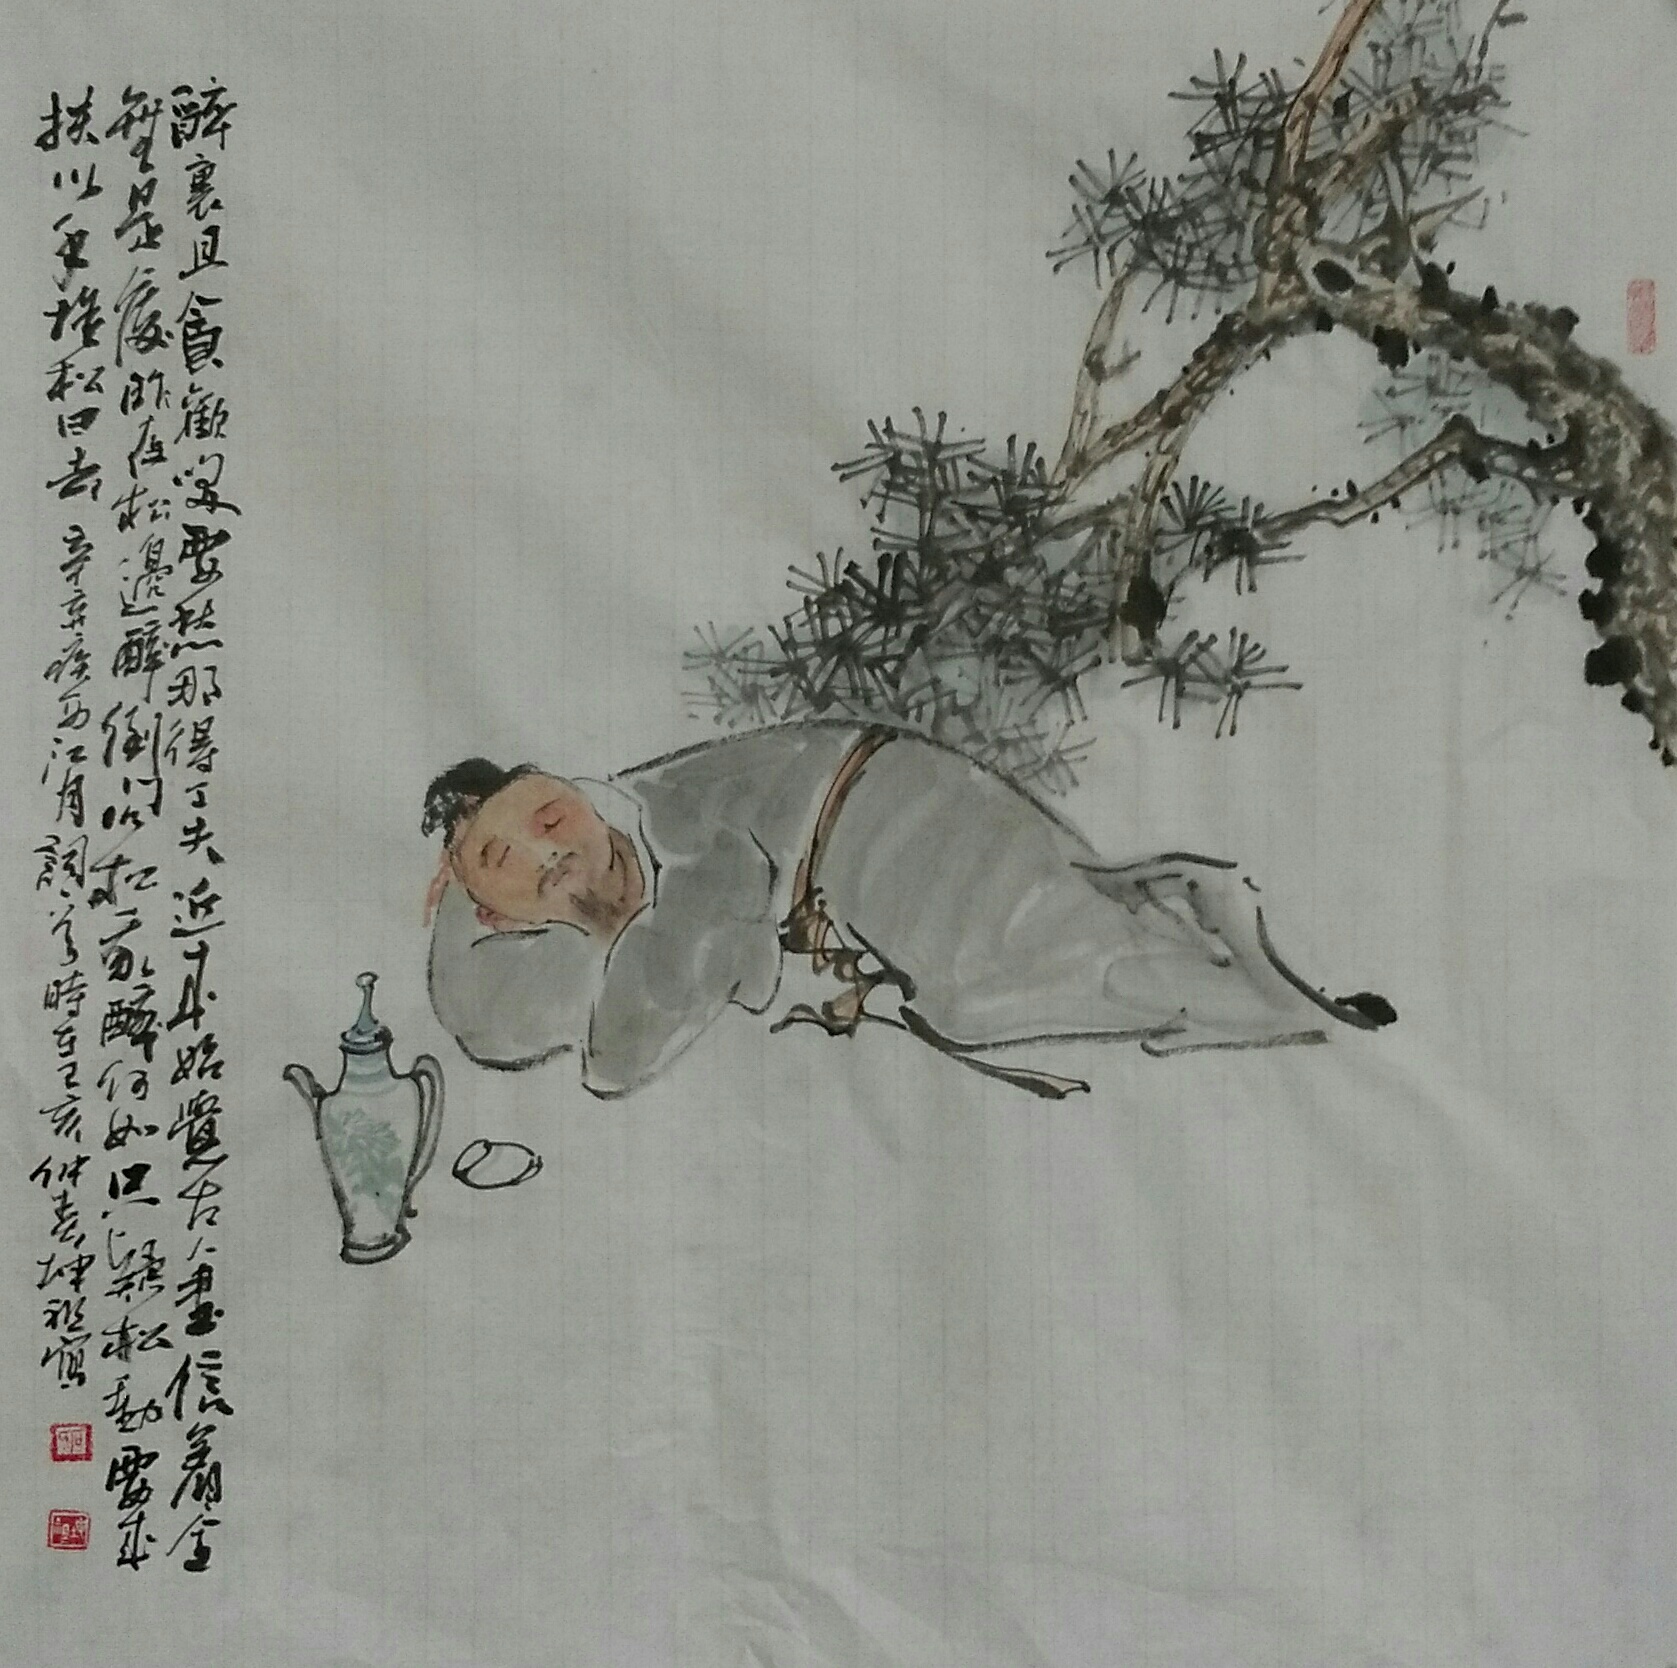 醉裏且貪歡笑要愁那得工夫近来始覺古人書信着全
無是處昨夜松邊醉倒問松我醉何如只疑松動要来
扶以手推松曰去 辛弃疾西江月詞意時在己亥仲春坤祖寫